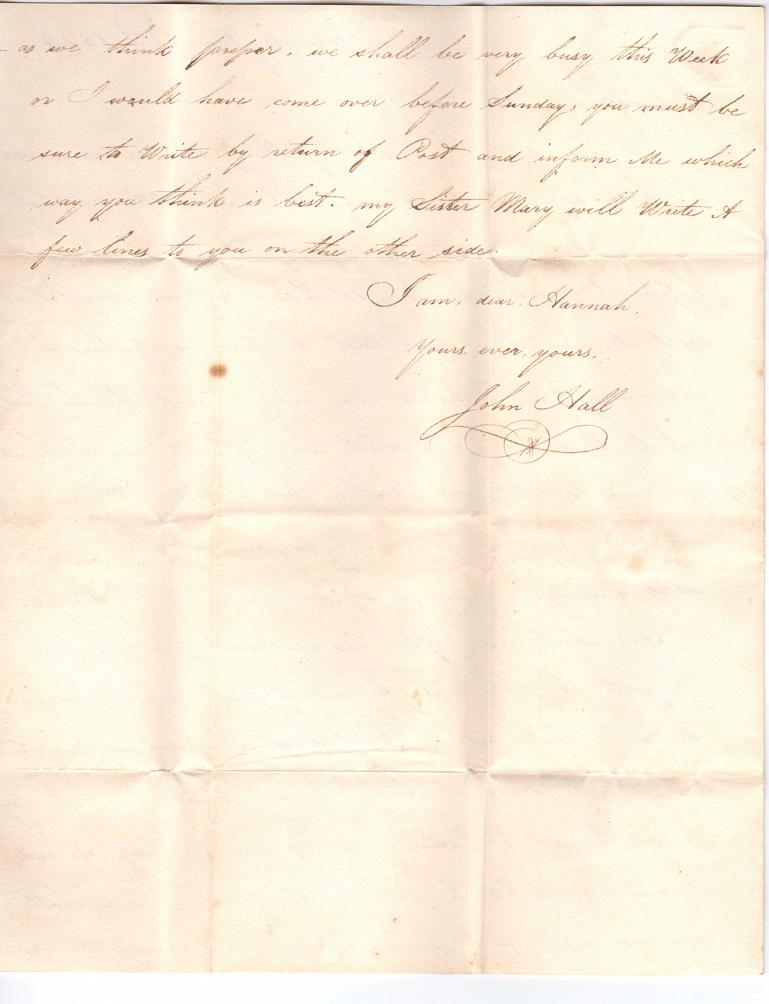 as we think proper. we shall be very busy this Week
or I would have come over before Sunday, you must be
sure to Write by return of Post and inform Me which
way you think is best. my Sister Mary will Write A
few lines to you on the other side.
I am, dear, Hannah.
Yours, ever, yours.
John Hall